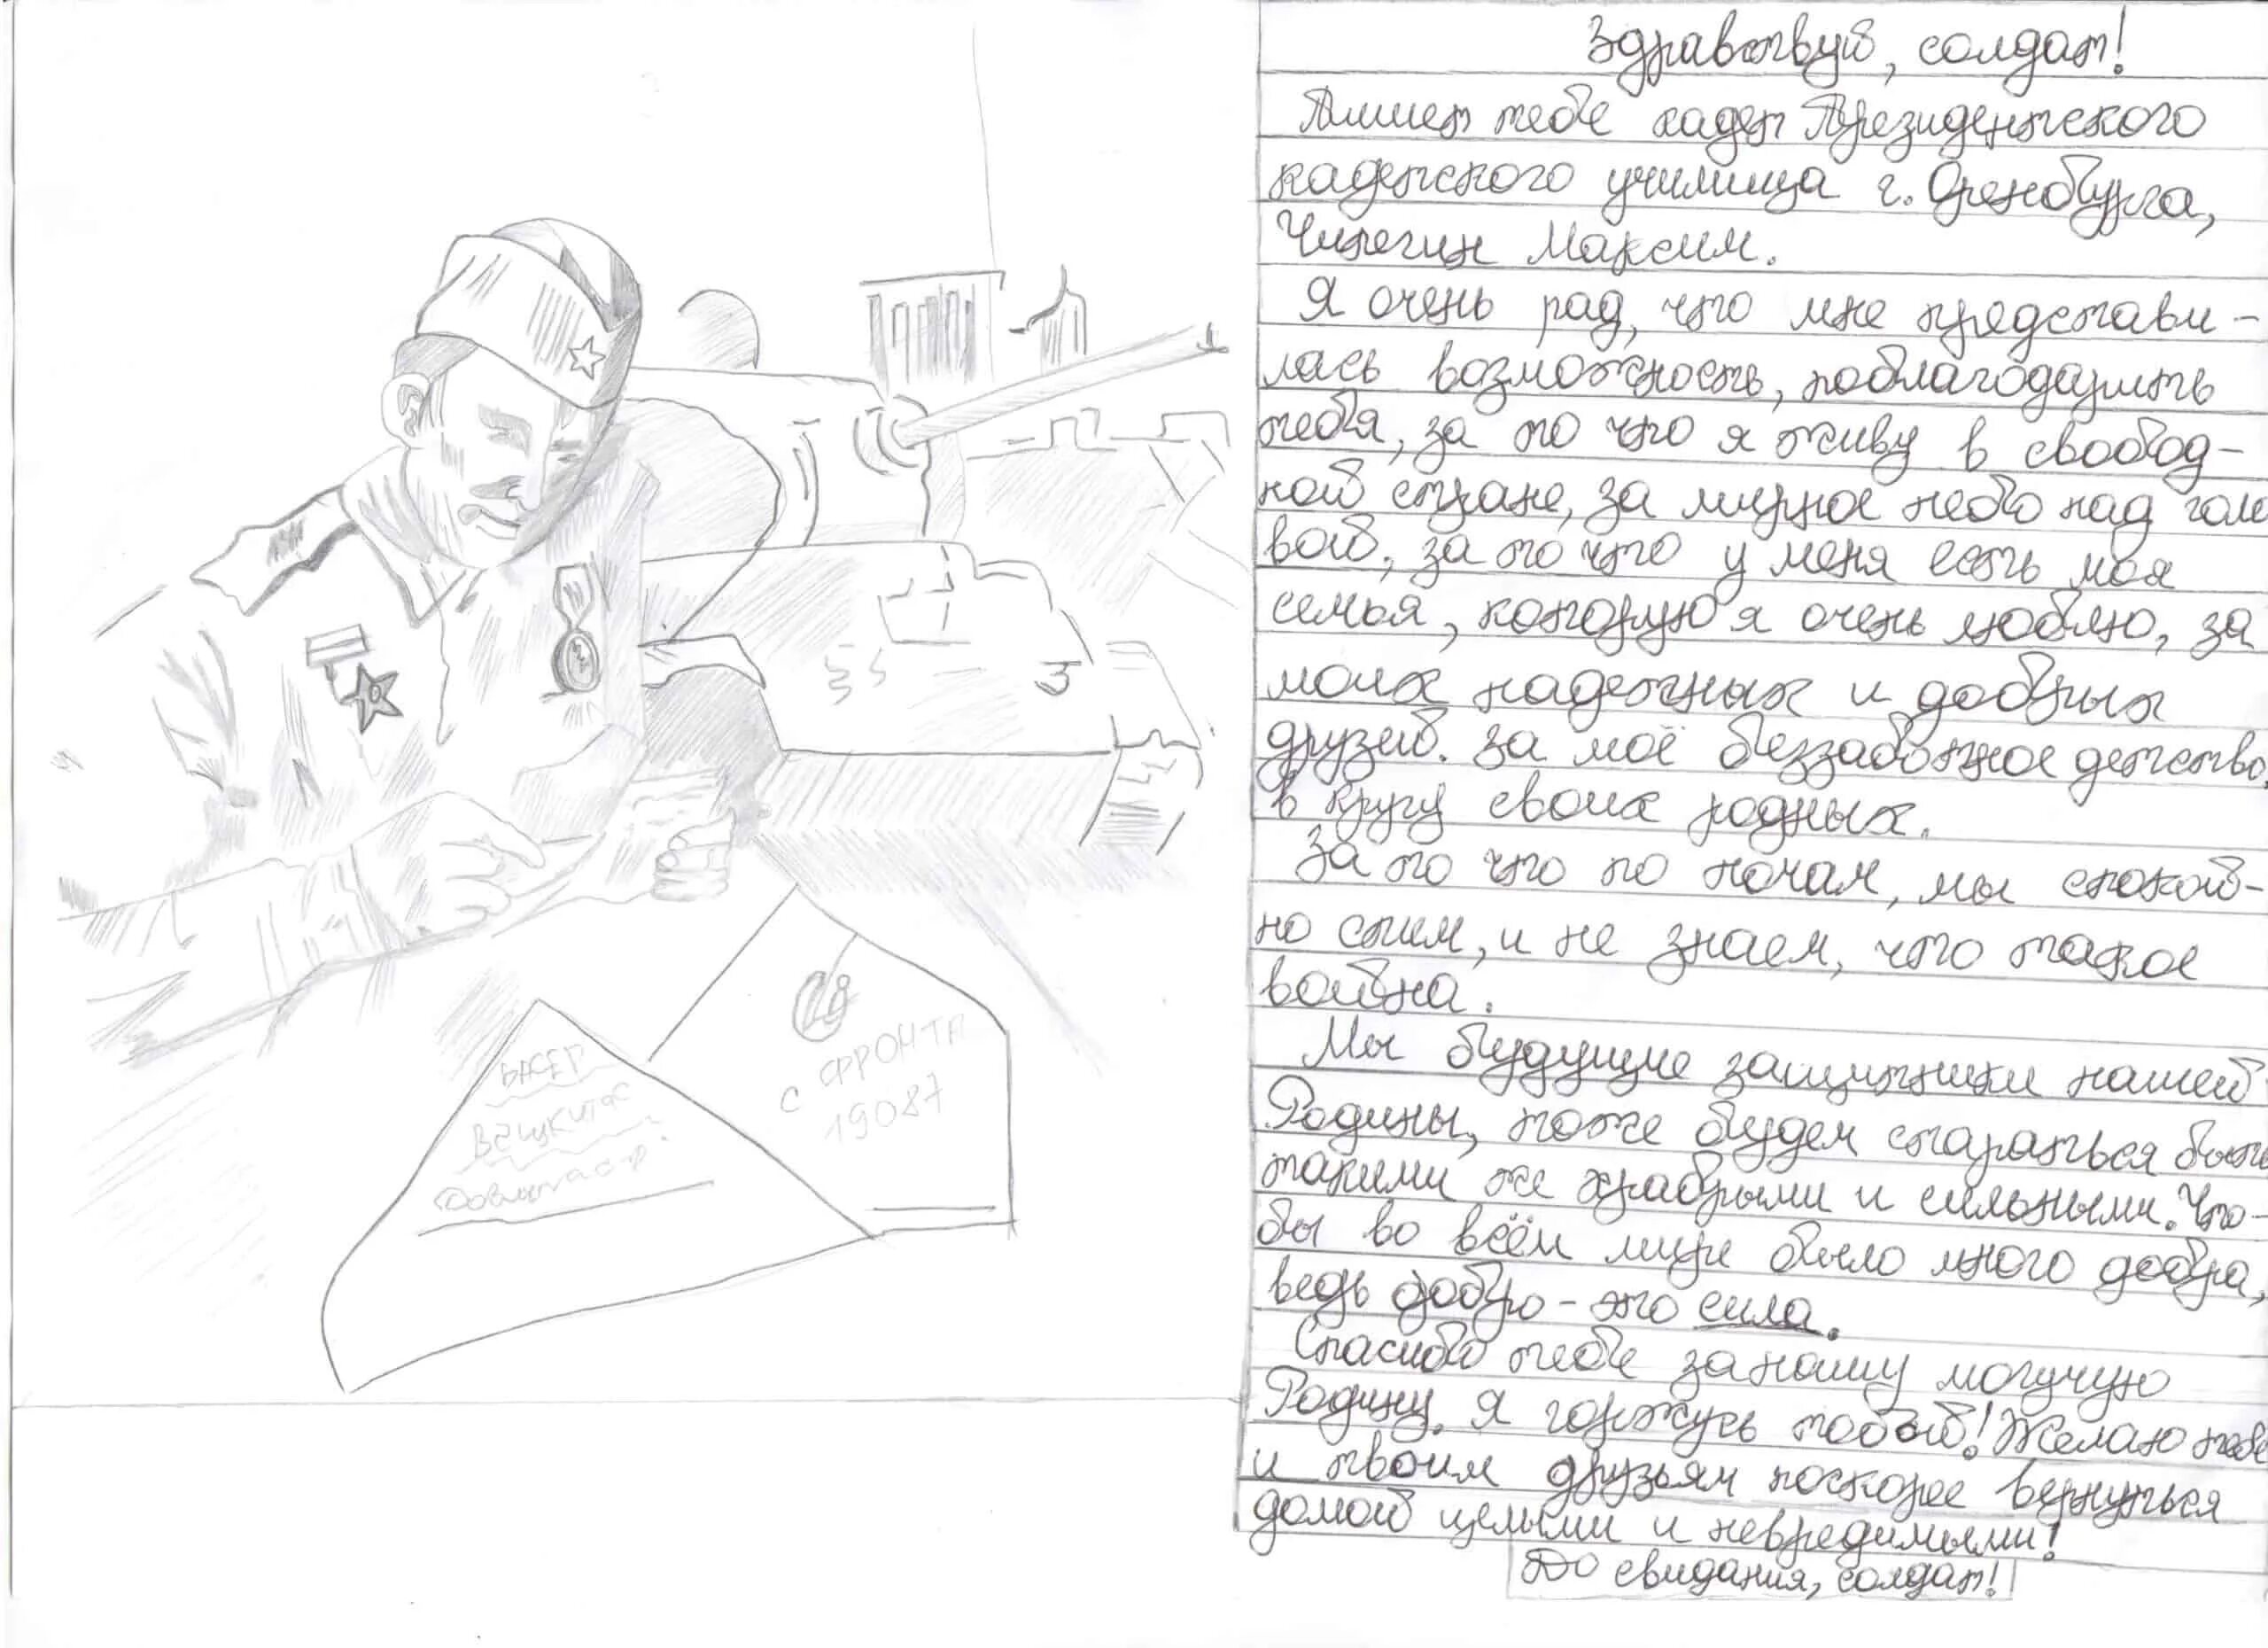 С ФРОНТА
19087
Здравствуй, солдат!
Пишет тебе кадет Президентского
кадетского училища г. Оренбурга,
Максим.
Я очень рад, что мне представи-
лась возможность, поблагодарить
тебя, за то что я живу в свобод-
ной стране, за мирное небо над голо
вой, за то что у меня есть моя
семья, которую я очень люблю, за
моих надежных и добрых
друзей. За моё беззаботное детство,
в кругу своих родных.
За то что по ночам, мы спокой-
но спим, и не знаем, что такое
война.
Мы будущие защитники нашей
Родины, тоже будем стараться быть
такими же храбрыми и сильными. Что-
бы во всём мире было много добра,
ведь добро - это сила.
Спасибо тебе за нашу могучую
Родину. Я горжусь тобой! Желаю тебе
и твоим друзьям поскорее вернуться
домой целыми и невредимыми!
До свидания, солдат!